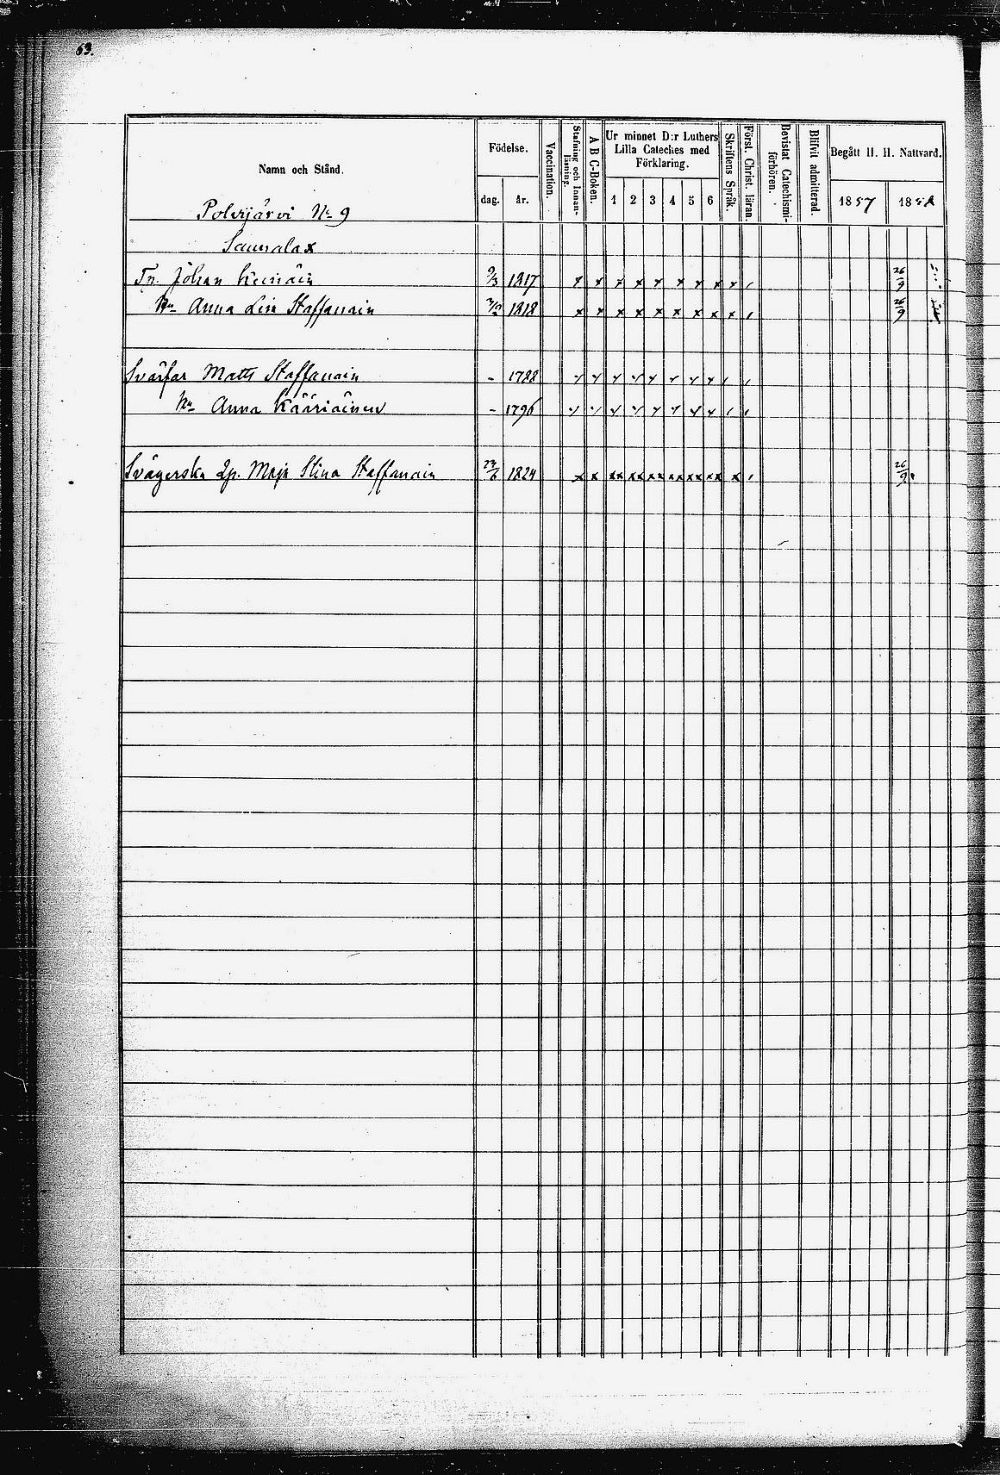 63.
Namn och Stånd. Födelse. dag. år. Vaccination. Stafning och Innanläsning. A B C-Boken. Ur minnet D:r Luthers Lilla Cateches med Förklaring. 1 2 3 4 5 6 Skriftens Språk. Först. Christ. läran. Bevistat Catechismiförhören. Blifvit admitterad. Begått H. H. Nattvard. 1857 185
Polvijärvi No 9
Saunalax
Johan 9/3 1817 x x x x x x x x x x 26/9
Hu Anna Lisa Staffanain 1818 x x x x x x x x x x 26/9
Svärfar Matts Staffanain - 1788
Hu Anna Kääriäinen - 1796
Svägerska Maja Stina Staffanain 1824 x x xx xx xx xx xx xx x 26/9